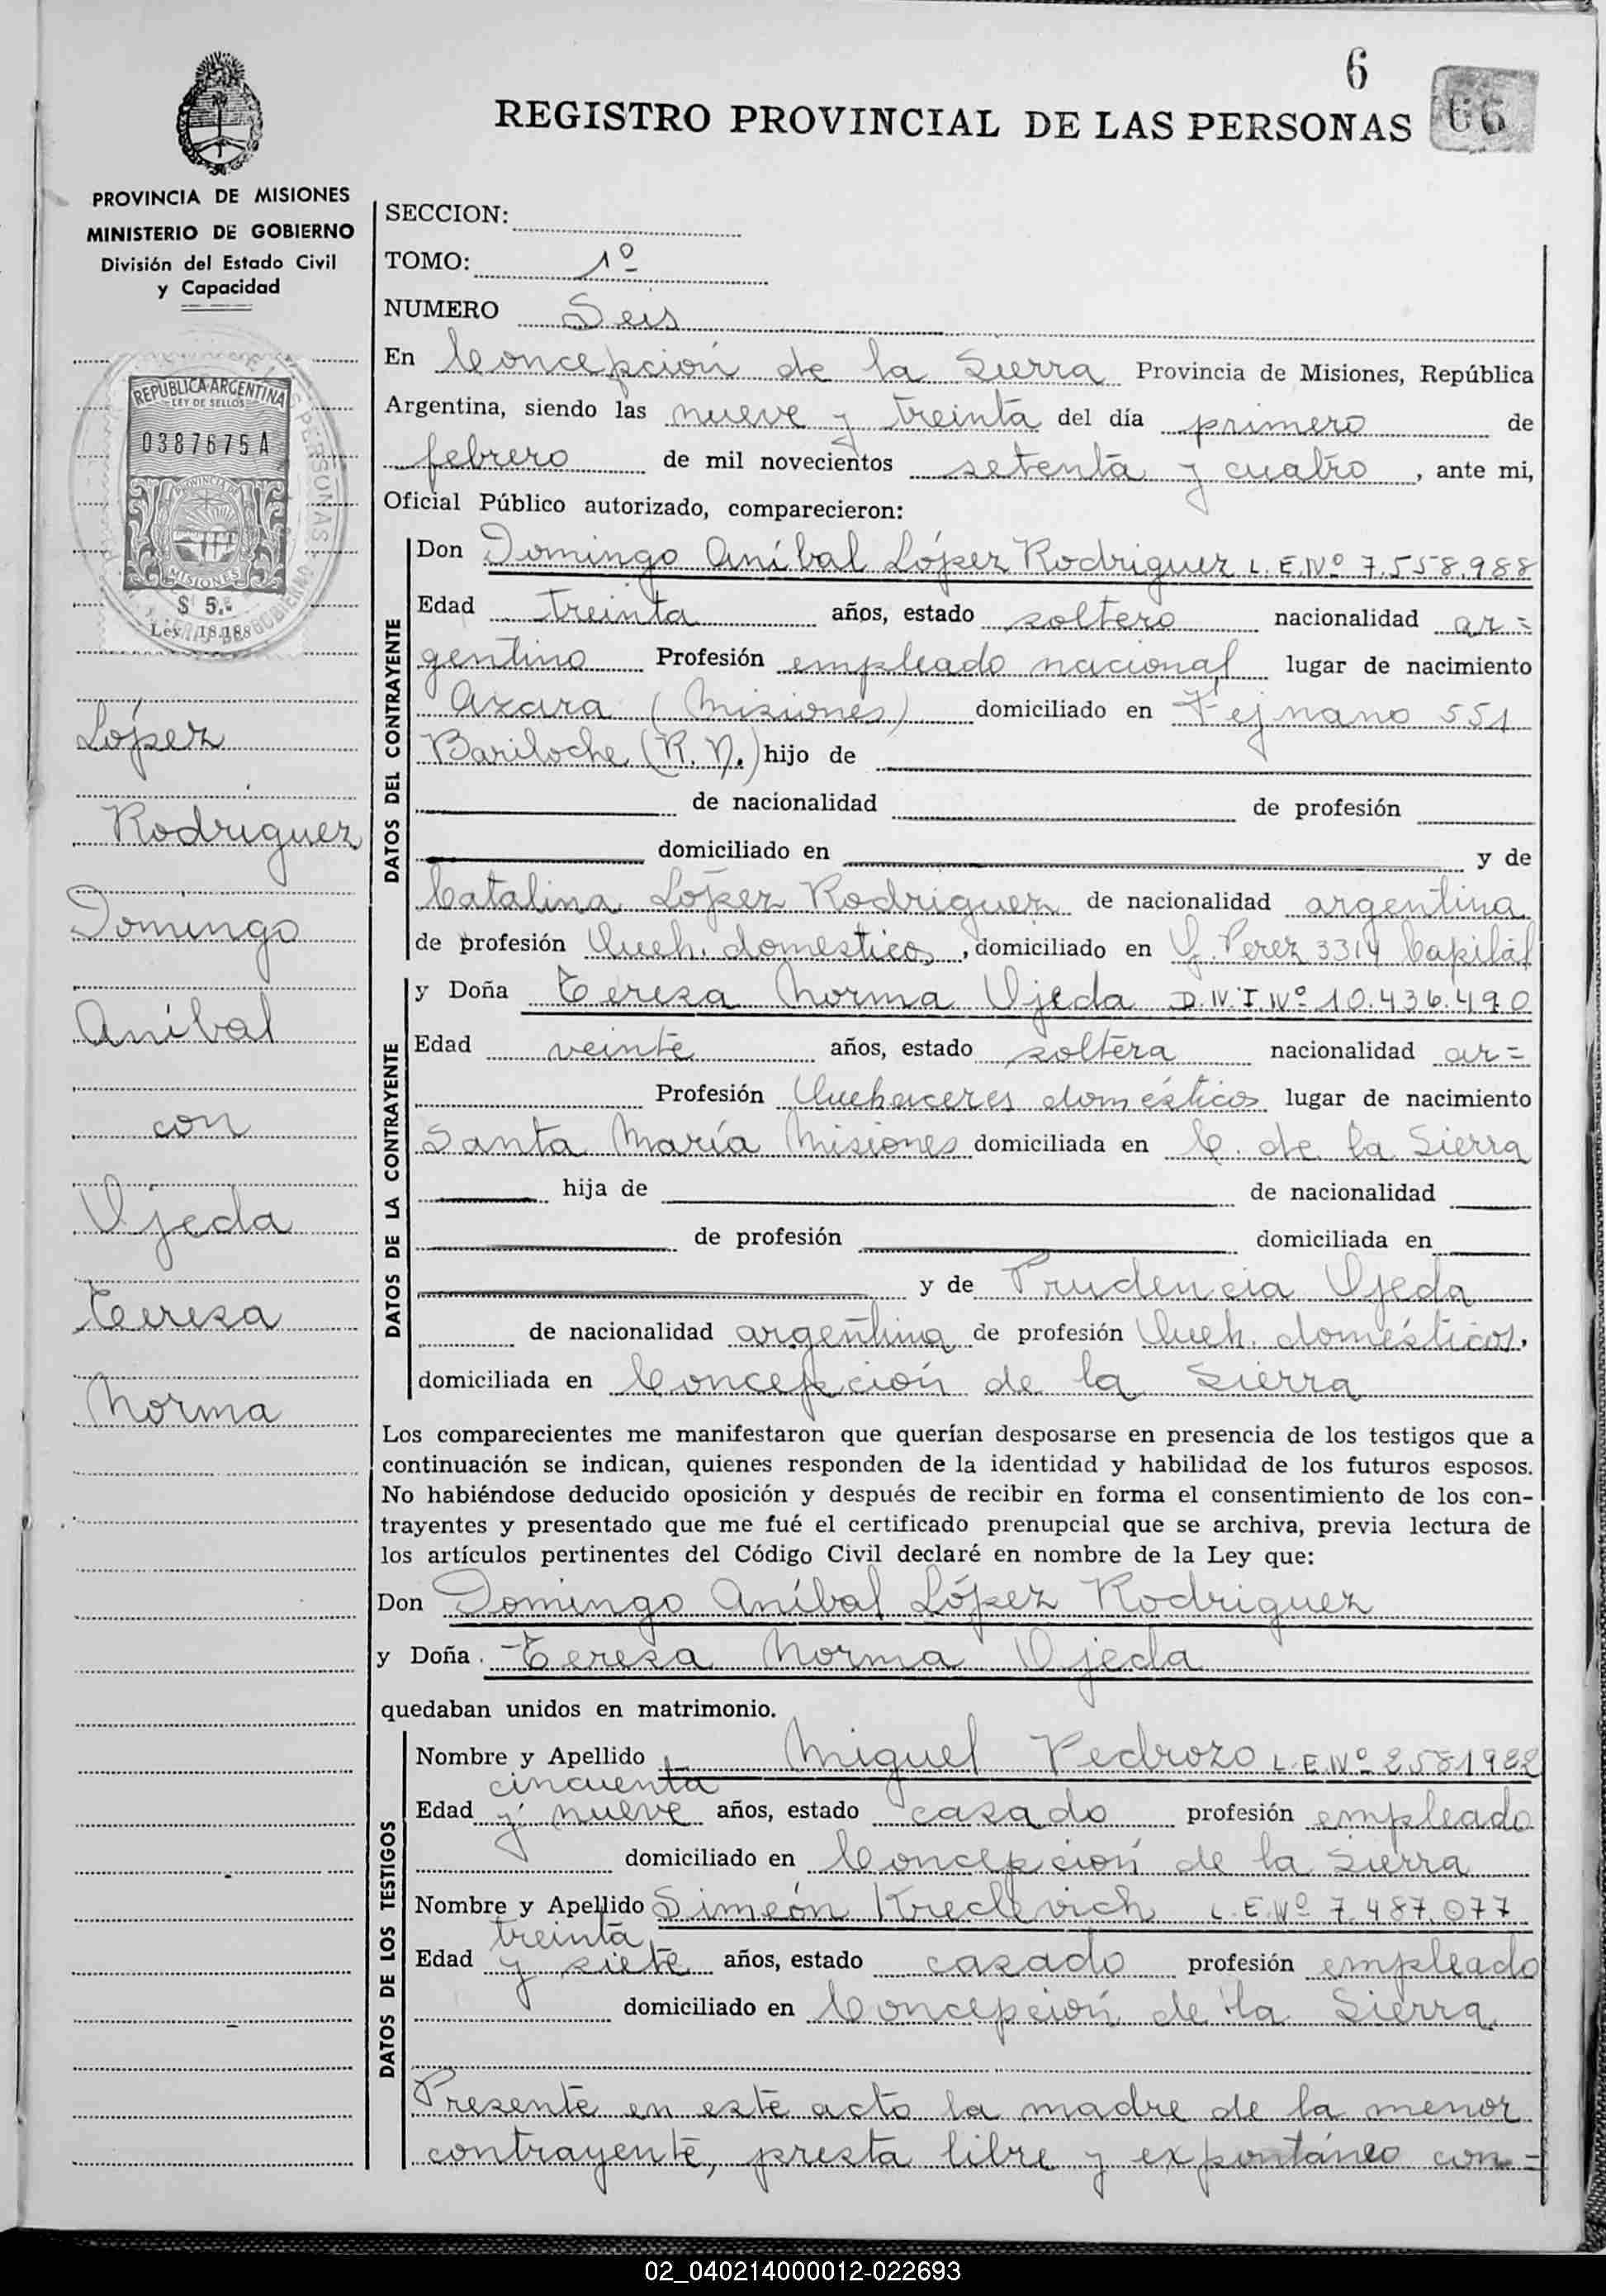 6
66
REGISTRO PROVINCIAL DE LAS PERSONAS
PROVINCIA DE MISIONES
MINISTERIO DE GOBIERNO
División del Estado Civil
y Capacidad
REPUBLICA ARGENTINA
LEY DE SELLOS
0387675 A
PROVINCIA DE
MISIONES
$ 5.-
Ley 18.188
López
Rodriguez
Domingo
Aníbal
con
Ojeda
Teresa
Norma
SECCION:
TOMO: 1º
NUMERO Seis
En Concepción de la Sierra Provincia de Misiones, República
Argentina, siendo las nueve y treinta del día primero de
febrero de mil novecientos setenta y cuatro, ante mi,
Oficial Público autorizado, comparecieron:
DATOS DEL CONTRAYENTE
Don Domingo Aníbal López Rodriguez L.E.Nº 7.558.988
Edad treinta años, estado soltero nacionalidad ar=
gentino Profesión empleado nacional lugar de nacimiento
Azara (Misiones) domiciliado en 551
Bariloche (R.N.) hijo de
de nacionalidad de profesión
domiciliado en y de
Catalina López Rodriguez de nacionalidad argentina
de profesión Queh. domesticos, domiciliado en J. Perez 3314 Capital
DATOS DE LA CONTRAYENTE
y Doña Teresa Norma Ojeda D.N.I.Nº 10.436.490
Edad veinte años, estado soltera nacionalidad ar=
Profesión Quehaceres domésticos lugar de nacimiento
Santa María Misiones domiciliada en C. de la Sierra
hija de de nacionalidad
de profesión domiciliada en
y de Prudencia Ojeda
de nacionalidad argentina de profesión Queh. domésticos,
domiciliada en Concepción de la Sierra
Los comparecientes me manifestaron que querían desposarse en presencia de los testigos que a
continuación se indican, quienes responden de la identidad y habilidad de los futuros esposos.
No habiéndose deducido oposición y después de recibir en forma el consentimiento de los con-
trayentes y presentado que me fué el certificado prenupcial que se archiva, previa lectura de
los artículos pertinentes del Código Civil declaré en nombre de la Ley que:
Don Domingo Aníbal López Rodriguez
y Doña Teresa Norma Ojeda
quedaban unidos en matrimonio.
DATOS DE LOS TESTIGOS
Nombre y Apellido Miguel Pedrozo L.E.Nº 2.581922
cincuenta
Edad y nueve años, estado casado profesión empleado
domiciliado en Concepción de la Sierra
Nombre y Apellido Simeón Kreclevich L.E.Nº 7.487.077
treinta
Edad y siete años, estado casado profesión empleado
domiciliado en Concepción de la Sierra
Presente en este acto la madre de la menor
contrayente, presta libre y expontáneo con=
02_040214000012-022693